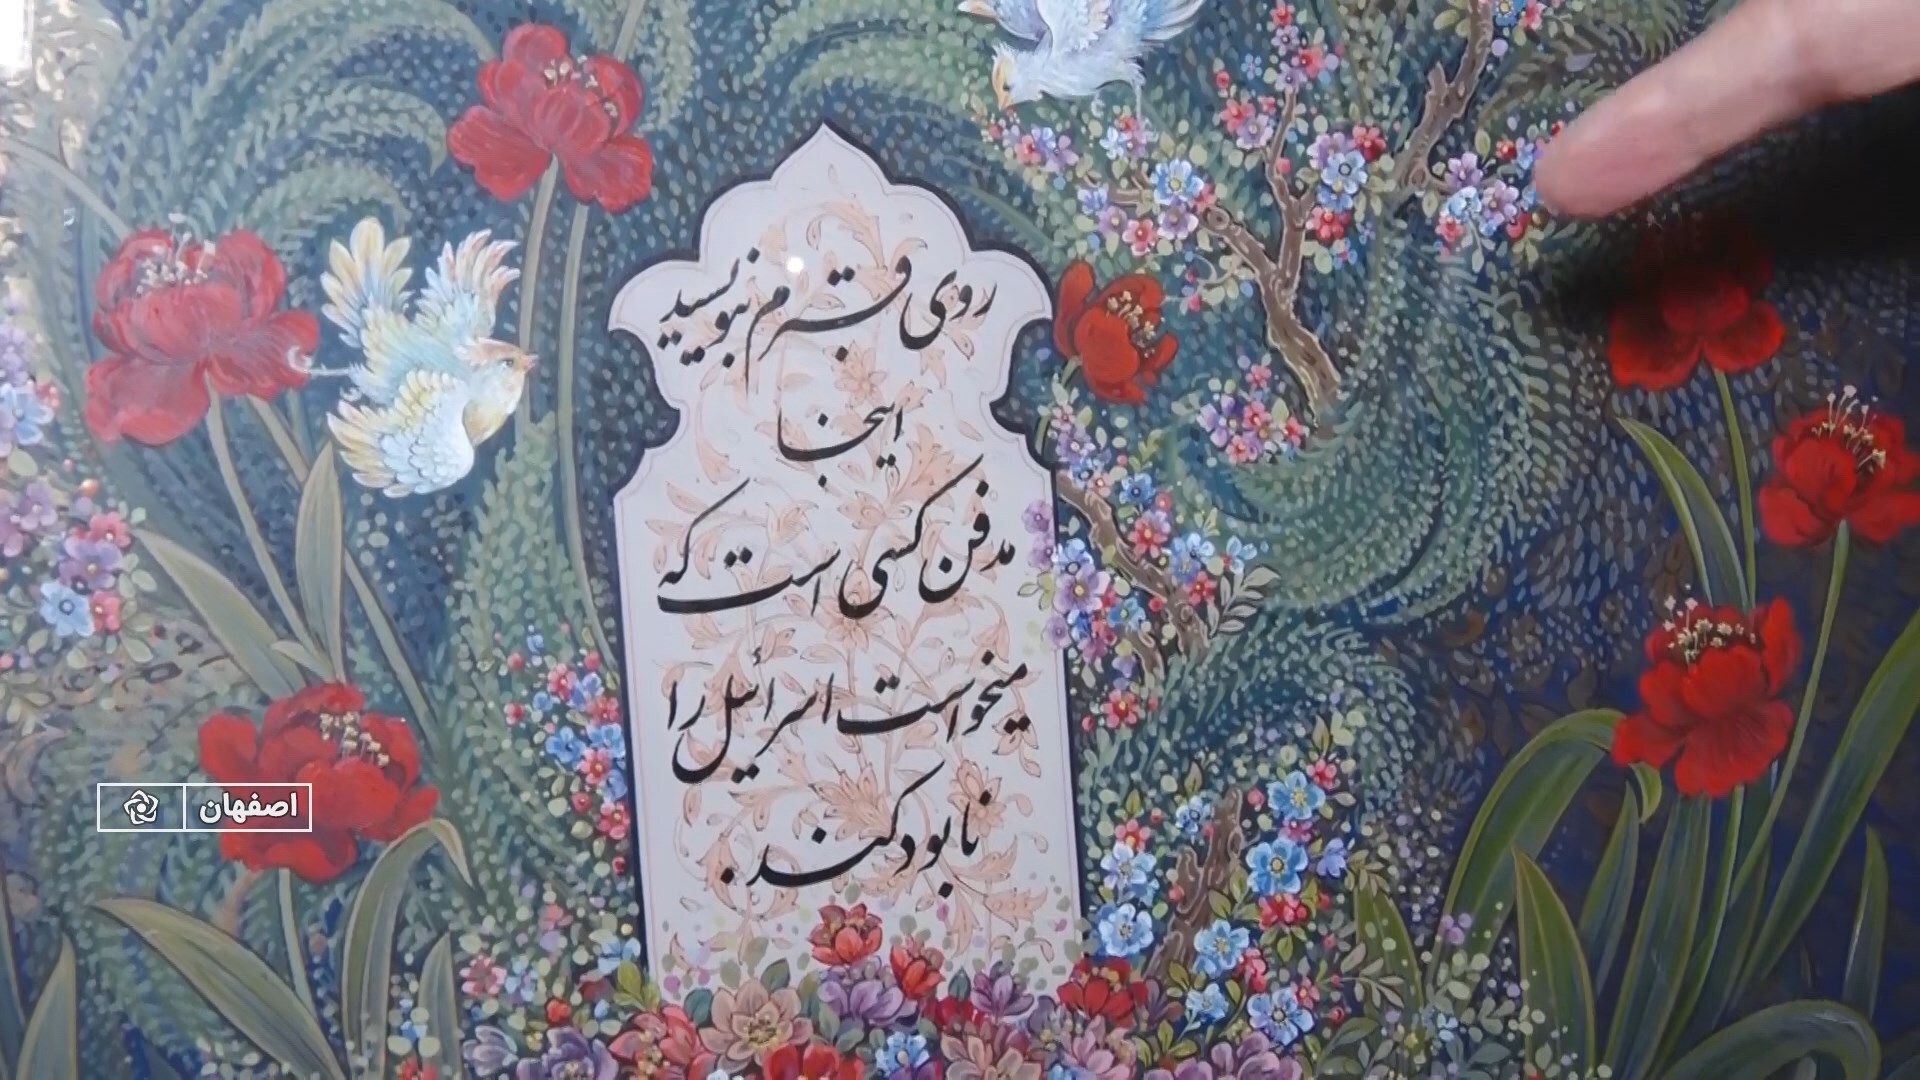 روی قبرم بنویسید
اینجا
مدفن کسی است که
میخواست اسرائیل را
نابود کند.
اصفهان